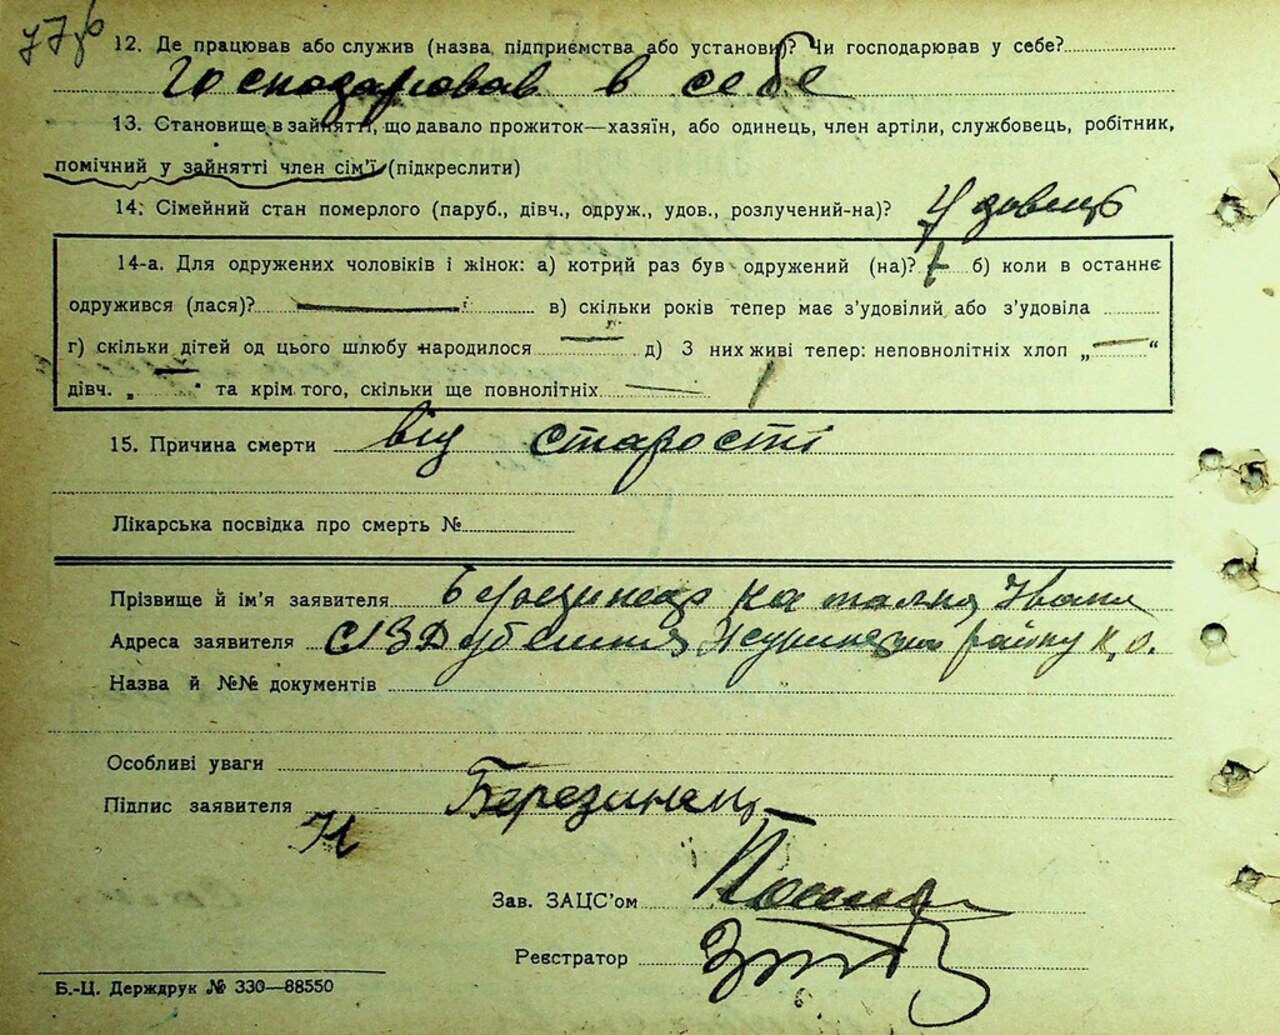 12. Де працював або служив (назва підприємства або установи)? Чи господарював у себе?
Господарював в себе
13. Становище в зайнятті, що давало прожиток—хазяїн, або одинець, член артіли, службовець, робітник,
помічний у зайнятті член сім'ї (підкреслити)
14. Сімейний стан померлого (паруб., дівч., одруж., удов., розлучений-на)? Удовець
14-а. Для одружених чоловіків і жінок: а) котрий раз був одружений (на)? б) коли в останнє
одружився (лася)? — в) скільки років тепер має з'удовілий або з'удовіла
г) скільки дітей од цього шлюбу народилося — д) З них живі тепер: неповнолітніх хлоп „—“
дівч. „—" та крім того, скільки ще повнолітніх —
15. Причина смерти від старости
Лікарська посвідка про смерть №
Прізвище й ім'я заявителя Березинець
Адреса заявителя району К. О.
Назва й №№ документів
Особливі уваги
Підпис заявителя Березинець
Зав. ЗАЦС'ом
Реєстратор
Б.-Ц. Держдрук № 330—88550